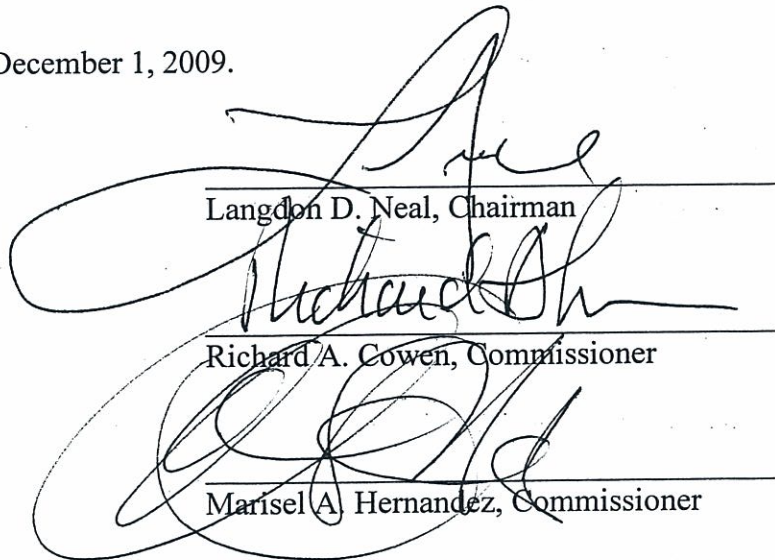 December 1, 2009.
Langdon D. Neal, Chairman
Richard
Richard A. Cowen, Commissioner
Marisel A. Hernandez, Commissioner